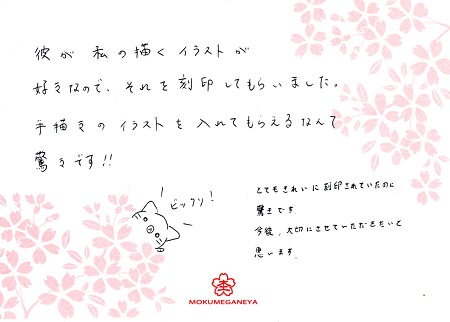 彼が 私の描く イラストが
好きなので、それを刻印してもらいました。
手描きの イラストを 入れてもらえるなんて
驚きです!!
ビックリ!
とてもきれいに刻印されていたのに
驚きです。
今後、大切にさせていただきたいと
思います。
MOKUMEGANEYA